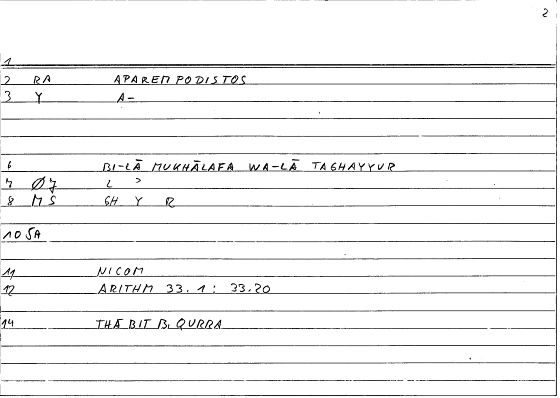 2
1
2 RA APAREMPODISTOS
3 Y A-
6 BI-LĀ MUKHĀLAFA WA-LĀ TAGHAYYUR
7 ØJ L ʾ
8 MS GH Y R
10 5A
11 NICOM
12 ARITHM 33.1 : 33.20
14 THĀBIT B. QURRA